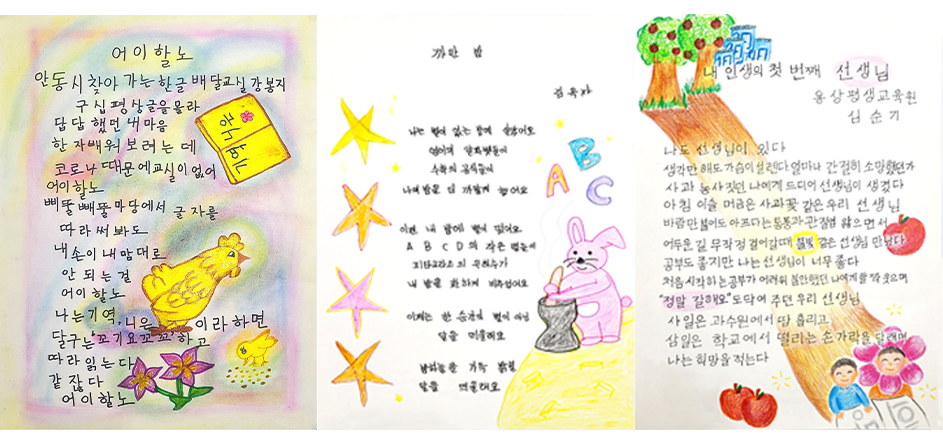 어이할노
안동시 찾아 가는 한글 배달교실 강봉지
구십평생 글을 몰라
답답했던 내 마음
한 자 배워 보려는 데
코로나 때문에 교실이 없어
어이할노
삐뚤빼뚤 마당에서 글자를
따라 써 봐도
내 손이 내 맘대로
안 되는 걸
어이할노
나는 기역, 니은 이라 하면
달구는 꼬기요 꼬꼬 하고
따라 읽는다
같잖다
어이할노
국어
까만 밤
나는 별이 없는 밤에 살았어요
영어의 알파벳들이
수학의 공식들이
나의 밤을 더 까맣게
이젠 내 밤에 별이 떴어요
A B C D의 작은 별들이
피타고라스의
내 밤을 환하게 비추었어요
이제는 한 순간의 별이 아닌
달을 띄울래요
밤하늘을 가득 밝힐
달을 띄울래요
A B C
내 인생의 첫 번째 선생님
용상평생교육원
심순기
나도 선생님이 있다
생각만 해도 가슴이 설렌다 얼마나 간절히 소망했던가
사과 농사 짓던 나에게 드디어 선생님이 생겼다
아침 이슬 머금은 사과꽃 같은 우리 선생님
바람만 불어도 아프다는 통풍과 관절염 앓으면서
어두운 길 무작정 걸어갈 때 불빛 같은 선생님 만났다
공부도 좋지만 나는 선생님이 너무 좋다
처음 시작하는 공부가 어려워 불안했던 나에게 활짝 웃으며
"정말 잘해요" 도닥여 주던 우리 선생님
사일은 과수원에서 땀 흘리고
삼일은 학교에서 떨리는 손가락을 달래며
나는 희망을 적는다